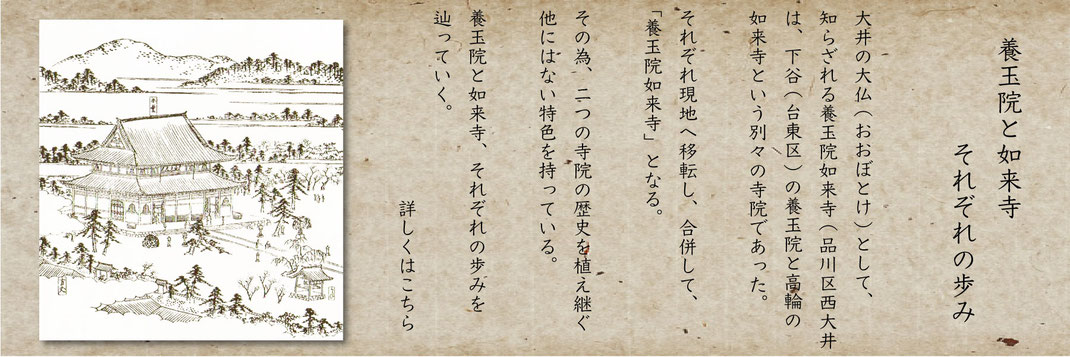 養玉院と如来寺
それぞれの歩み
大井の大仏（おおぼとけ）として、
知らざれる養玉院如来寺（品川区西大井
は、下谷（台東区）の養玉院と高輪の
如来寺という別々の寺院であった。
それぞれ現地へ移転し、合併して、
「養玉院如来寺」となる。
その為、二つの寺院の歴史を植え継ぐ
他にはない特色を持っている。
養玉院と如来寺、それぞれの歩みを
辿っていく。
詳しくはこちら